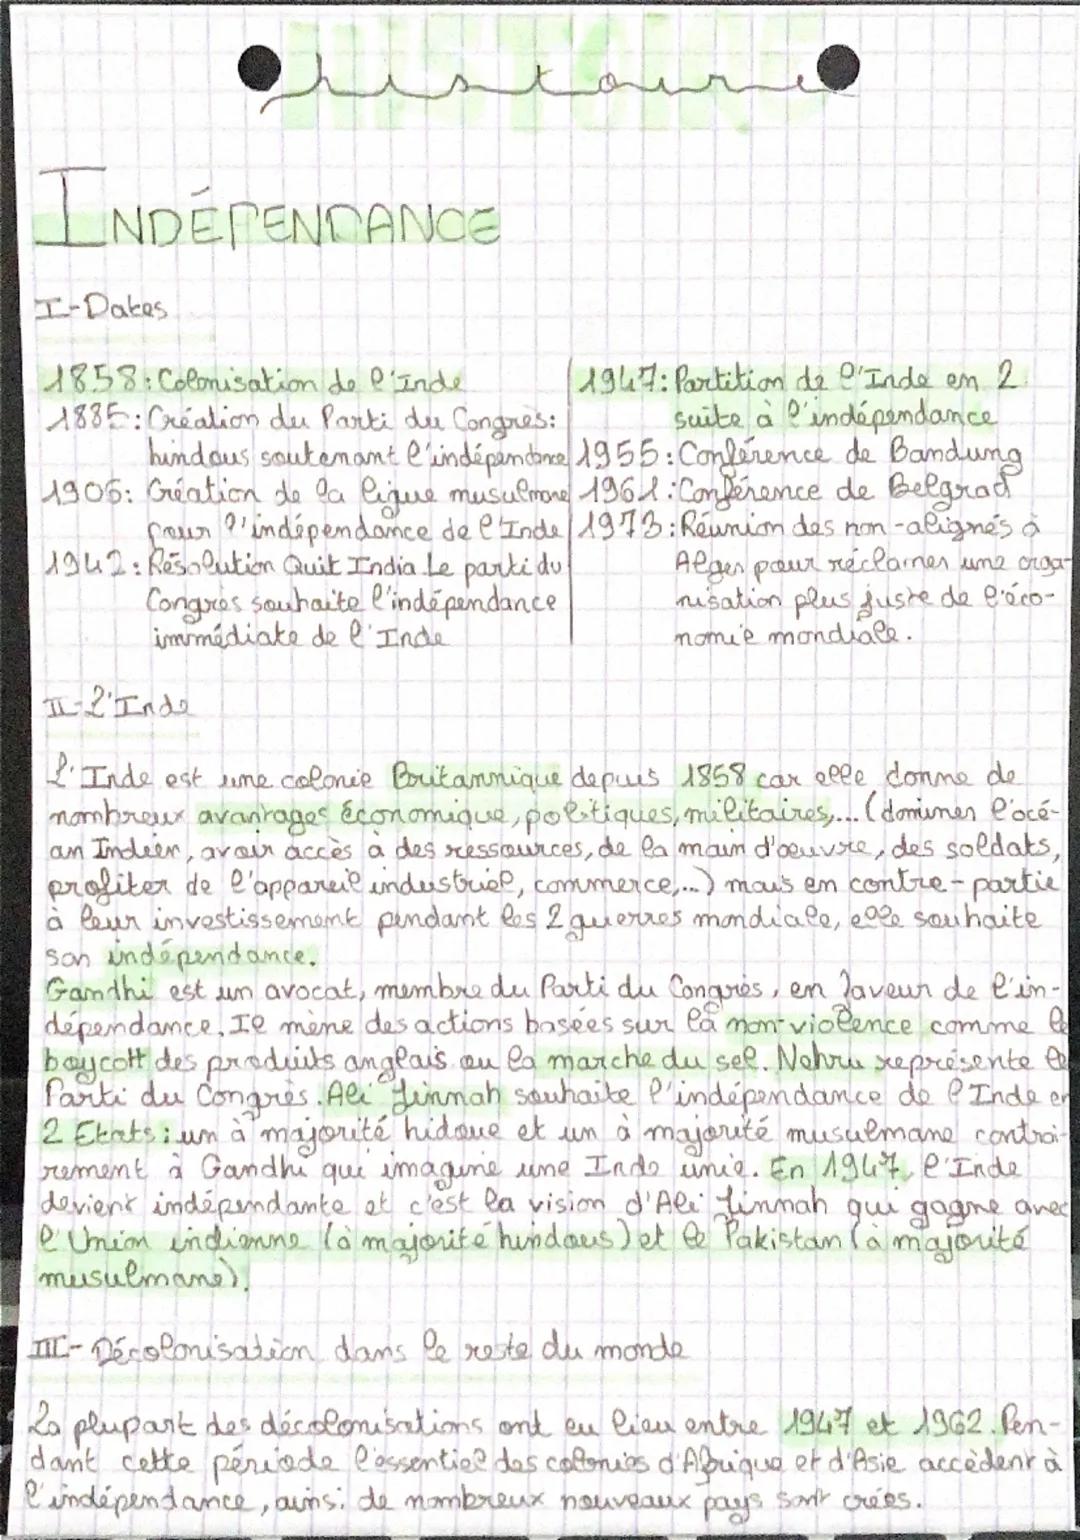 HISTOIRE
histoire
INDÉPENDANCE
I-Dates
1858: Colonisation de l'Inde
1885: Création du Parti du Congrès:
hindous soutenant l'indépendance
1906: Création de la ligue musulmane
pour l'indépendance de l'Inde
1942: Résolution Quit India Le parti du
Congrès souhaite l'indépendance
immédiate de l'Inde
1947: Partition de l'Inde en 2
suite à l'indépendance
1955: Conférence de Bandung
1961: Conférence de Belgrad
1973: Réunion des non-alignés à
Alger pour réclamer une orga-
nisation plus juste de l'éco-
nomie mondiale.
II-L'Inde
L'Inde est une colonie Britannique depuis 1858 car elle donne de
nombreux avantages économique, politiques, militaires,... (dominer l'océ-
an Indien, avoir accès à des ressources, de la main d'oeuvre, des soldats,
profiter de l'appareil industriel, commerce,...) mais en contre-partie
à leur investissement pendant les 2 guerres mondiale, elle souhaite
son indépendance.
Gandhi est un avocat, membre du Parti du Congrès, en faveur de l'in-
dépendance. Il mène des actions basées sur la non-violence comme le
boycott des produits anglais ou la marche du sel. Nehru représente le
Parti du Congrès. Ali Jinnah souhaite l'indépendance de l'Inde en
2 Etats: un à majorité hidoue et un à majorité musulmane contrai-
rement à Gandhi qui imagine une Inde unie. En 1947, l'Inde
devient indépendante et c'est la vision d'Ali Jinnah qui gagne avec
l'Union indienne (à majorité hindous) et le Pakistan (à majorité
musulmane).
III- Décolonisation dans le reste du monde
La plupart des décolonisations ont eu lieu entre 1947 et 1962. Pen-
dant cette période l'essentiel des colonies d'Afrique et d'Asie accèdent à
l'indépendance, ainsi de nombreux nouveaux pays sont créés.